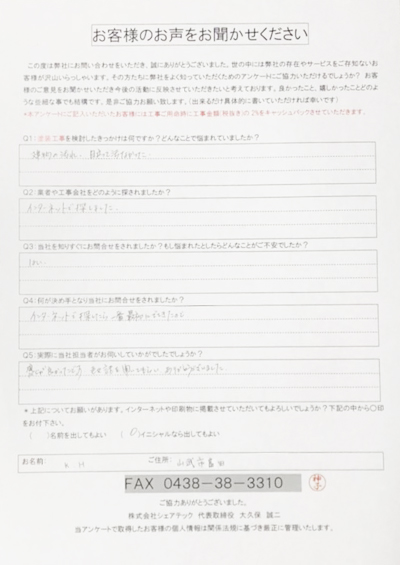 お客様のお声をお聞かせください
この度は弊社にお問い合わせをいただき、誠にありがとうございました。世の中には弊社の存在やサービスをご存知ないお
客様が沢山いらっしゃいます。その方たちに弊社をよく知っていただくためのアンケートにご協力いただけるでしょうか? お客
様のご意見をお聞かせいただき今後の活動に反映させていただきたいと考えております。良かったこと、嬉しかったことどのよ
うな些細な事でも結構です。是非ご協力お願い致します。(出来るだけ具体的に書いていただければ幸いです)
*本アンケートにご記入いただいたお客様には工事ご用命時に工事金額(税抜き)の2%をキャッシュバックさせていただきます。
Q1:塗装工事を検討したきっかけは何ですか?どんなことで悩まれていましたか?
Q2:業者や工事会社をどのように探されましたか?
インターネットで探しました。
Q3:当社を知りすぐにお問合せをされましたか?もし悩まれたとしたらどんなことがご不安でしたか?
はい。
Q4:何が決め手となり当社にお問合せをされましたか?
Q5:実際に当社担当者がお伺いしていかがでしたでしょうか?
ありがとうございました
*上記についてお願いがあります。インターネットや印刷物に掲載させていただいてもよろしいでしょうか?下記の中から〇印
をお付下さい。
( )名前を出してもよい ( )イニシャルなら出してもよい
お名前: ご住所:
FAX 0438-38-3310
ご協力ありがとうございました。
株式会社シェアテック 代表取締役 大久保 誠二
当アンケートで取得したお客様の個人情報は関係法規に基づき厳正に管理いたします。